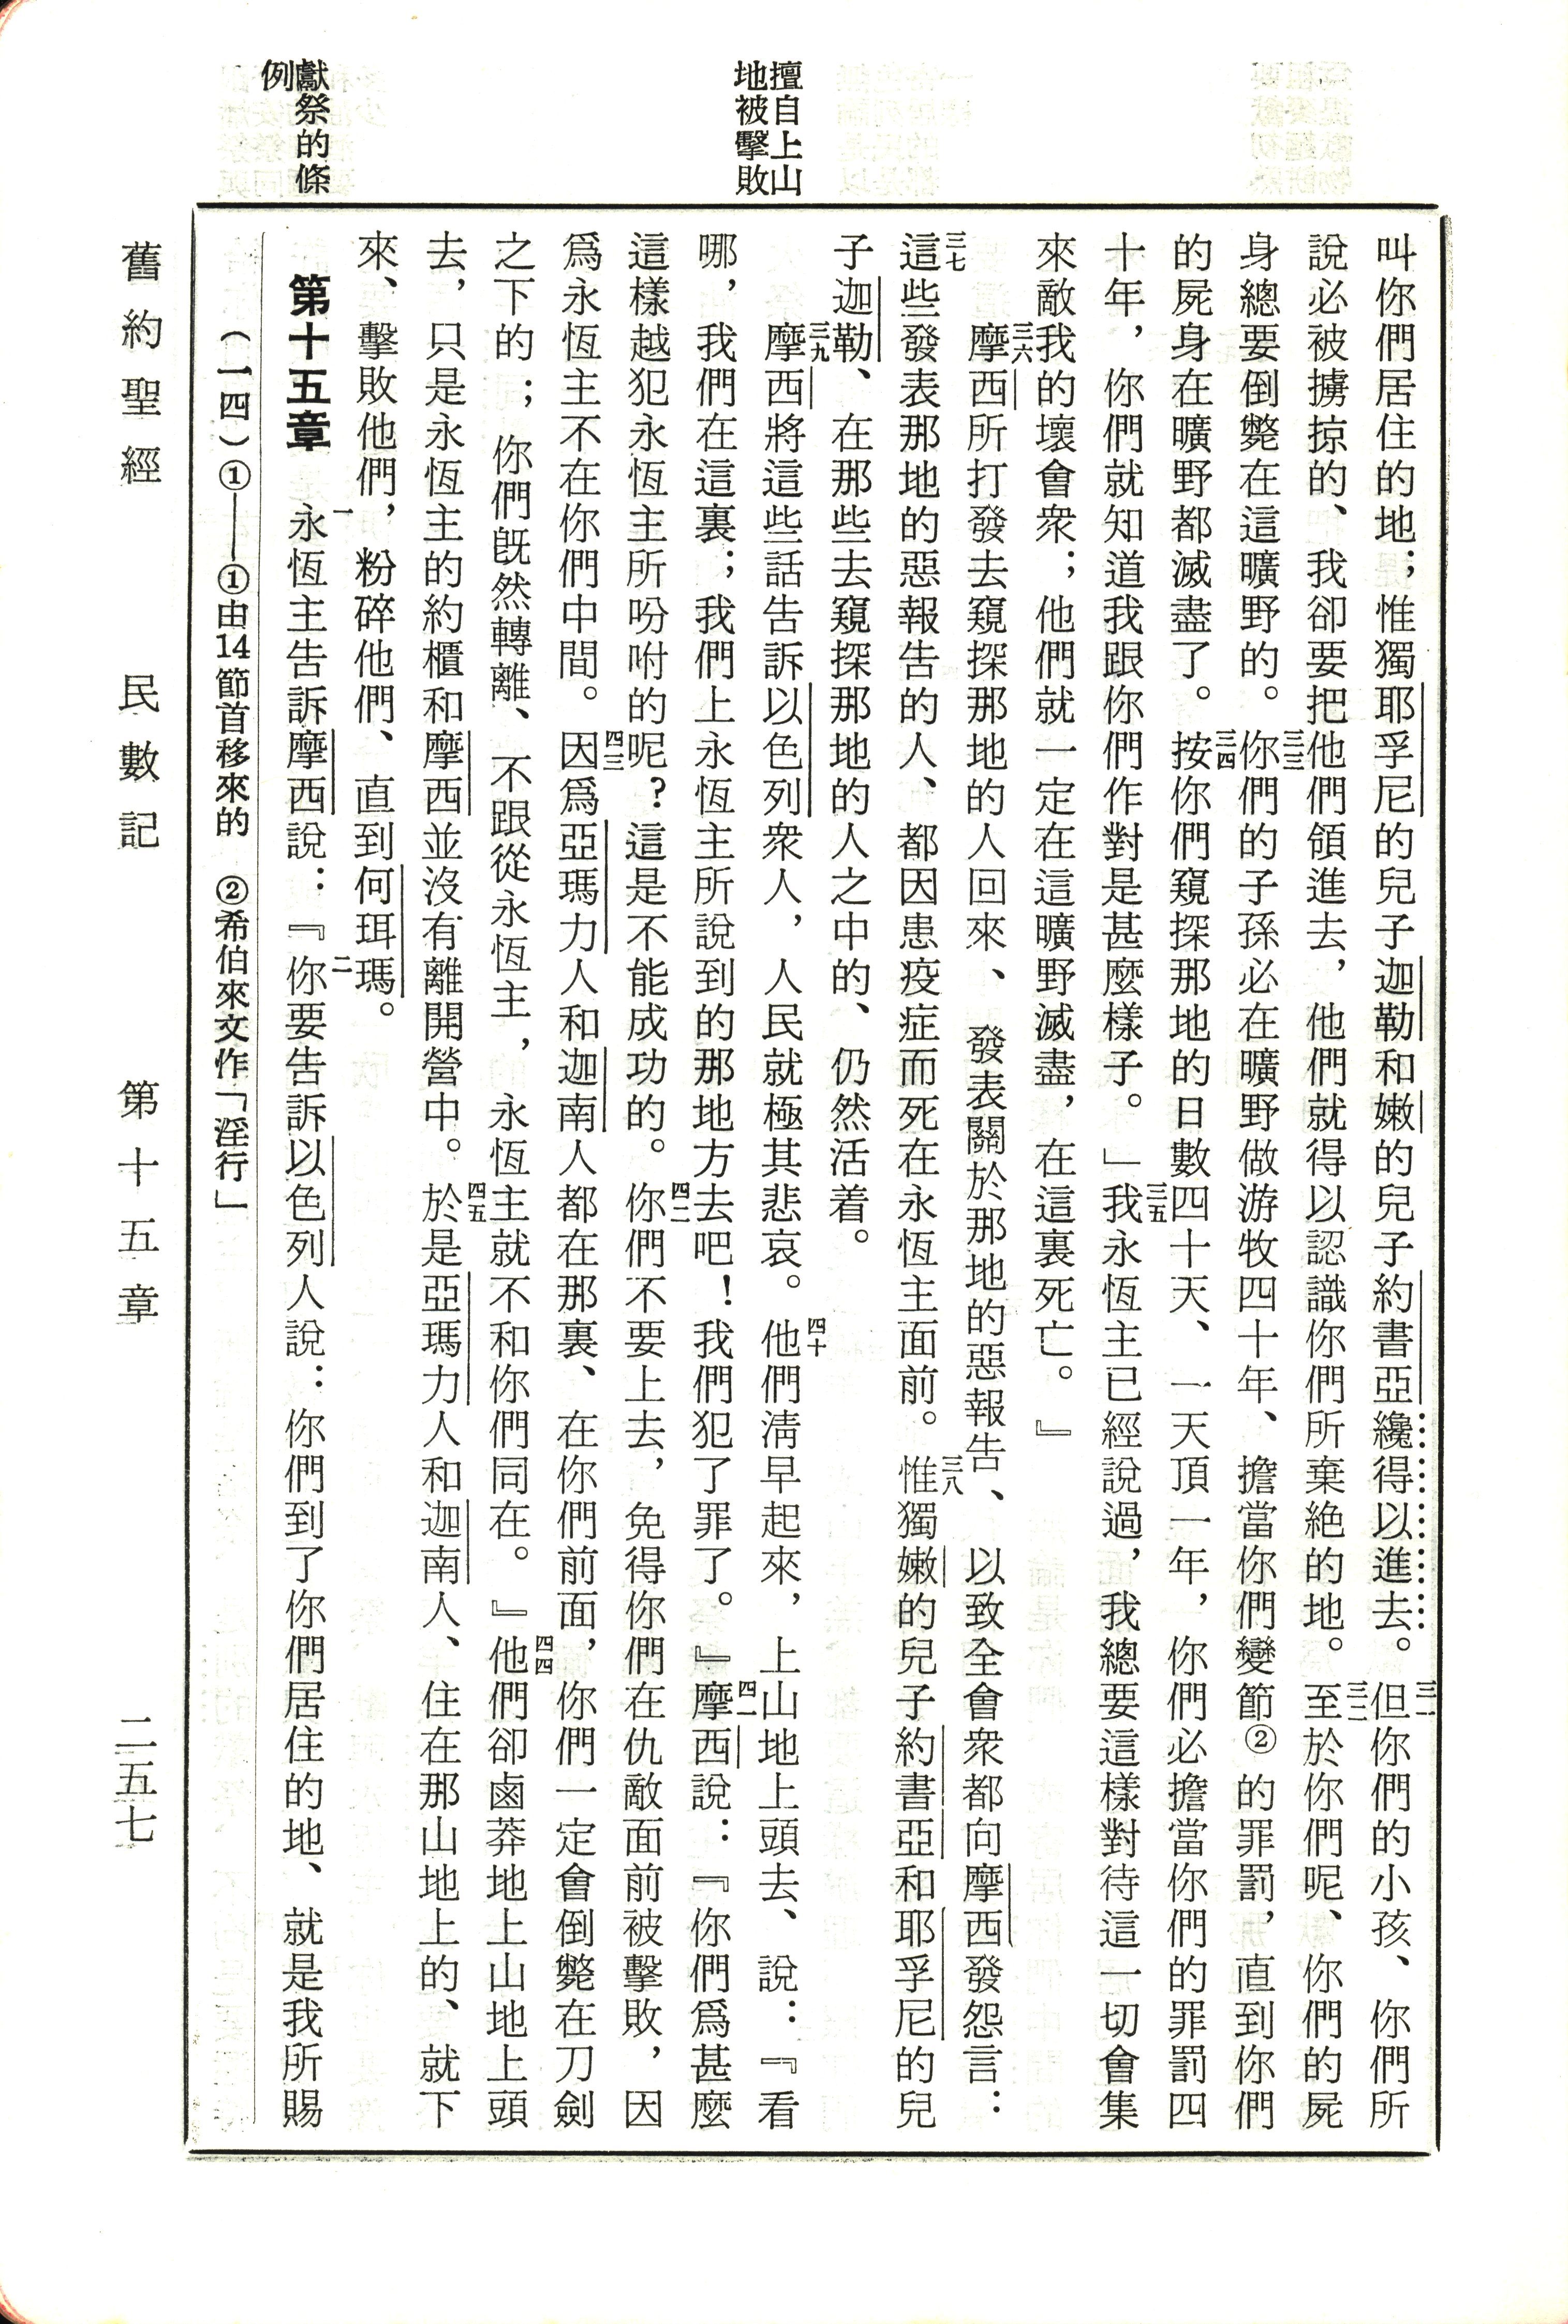 擅自上山
地被擊敗
獻祭的條
例
叫你們居住的地；惟獨耶孚尼的兒子迦勒和嫩的兒子約書亞纔得以進去。三一但你們的小孩、你們所
說必被擄掠的、我卻要把他們領進去，他們就得以認識你們所棄絶的地。三二至於你們呢、你們的屍
身總要倒斃在這曠野的。三三你們的子孫必在曠野做游牧四十年、擔當你們變節②的罪罰，直到你們
的屍身在曠野都滅盡了。三四按你們窺探那地的日數四十天、一天頂一年，你們必擔當你們的罪罰四
十年，你們就知道我跟你們作對是甚麼樣子。」三五我永恆主已經說過，我總要這樣對待這一切會集
來敵我的壞會衆；他們就一定在這曠野滅盡，在這裏死亡。』
三六摩西所打發去窺探那地的人回來、發表關於那地的惡報告、以致全會衆都向摩西發怨言：
三七這些發表那地的惡報告的人、都因患疫症而死在永恆主面前。三八惟獨嫩的兒子約書亞和耶孚尼的兒
子迦勒、在那些去窺探那地的人之中的、仍然活着。
三九摩西將這些話告訴以色列衆人，人民就極其悲哀。四十他們淸早起來，上山地上頭去、說：『看
哪，我們在這裏；我們上永恆主所說到的那地方去吧！我們犯了罪了。』四一摩西說：『你們爲甚麼
這樣越犯永恆主所吩咐的呢？這是不能成功的。四二你們不要上去，免得你們在仇敵面前被擊敗，因
爲永恆主不在你們中間。四三因爲亞瑪力人和迦南人都在那裏、在你們前面，你們一定會倒斃在刀劍
之下的；你們旣然轉離、不跟從永恆主，永恆主就不和你們同在。』四四他們卻鹵莽地上山地上頭
去，只是永恆主的約櫃和摩西並沒有離開營中。四五於是亞瑪力人和迦南人、住在那山地上的、就下
來、擊敗他們，粉碎他們、直到何珥瑪。
第十五章 一永恆主告訴摩西說：『二你要告訴以色列人說：你們到了你們居住的地、就是我所賜
（一四）①——①由14節首移來的 ②希伯來文作「淫行」
舊約聖經 民數記 第十五章 二五七